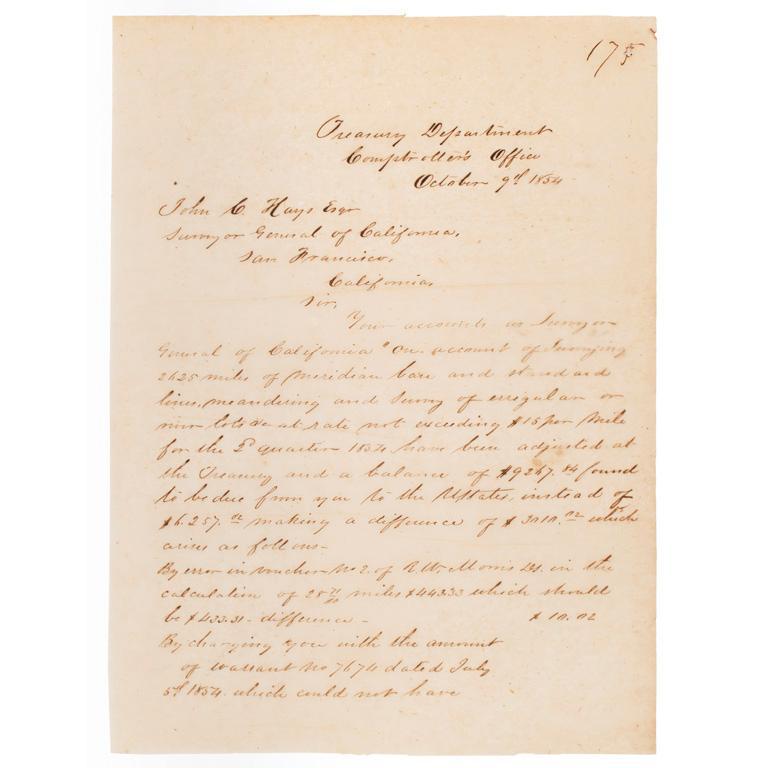 175
Treasury Department
Comptroller's Office
October 9th 1854
John C. Hays Esqr
Surveyor General of California,
San Francisco,
California,
Sir,
Your accounts as Surveyor
General of California "On account of Surveying
2625 miles of Meridian base and standard
lines, meandering and survey of erregular or
river lots &c at rate not exceeding $15 per mile
for the 2d quarter 1854 have been adjusted at
the Treasury and a balance of $9267.04 found
to be due from you to the UStates, instead of
$6.257.02 making a difference of $3010.02 which
arises as follows-
By error in voucher No 2. of R. W. Morris DS. in the
calculation of 28 miles $443.33 which should
be $433.31- difference - $10.02
By charging you with the amount
of warrant No 7674 dated July
5th 1854. which could not have